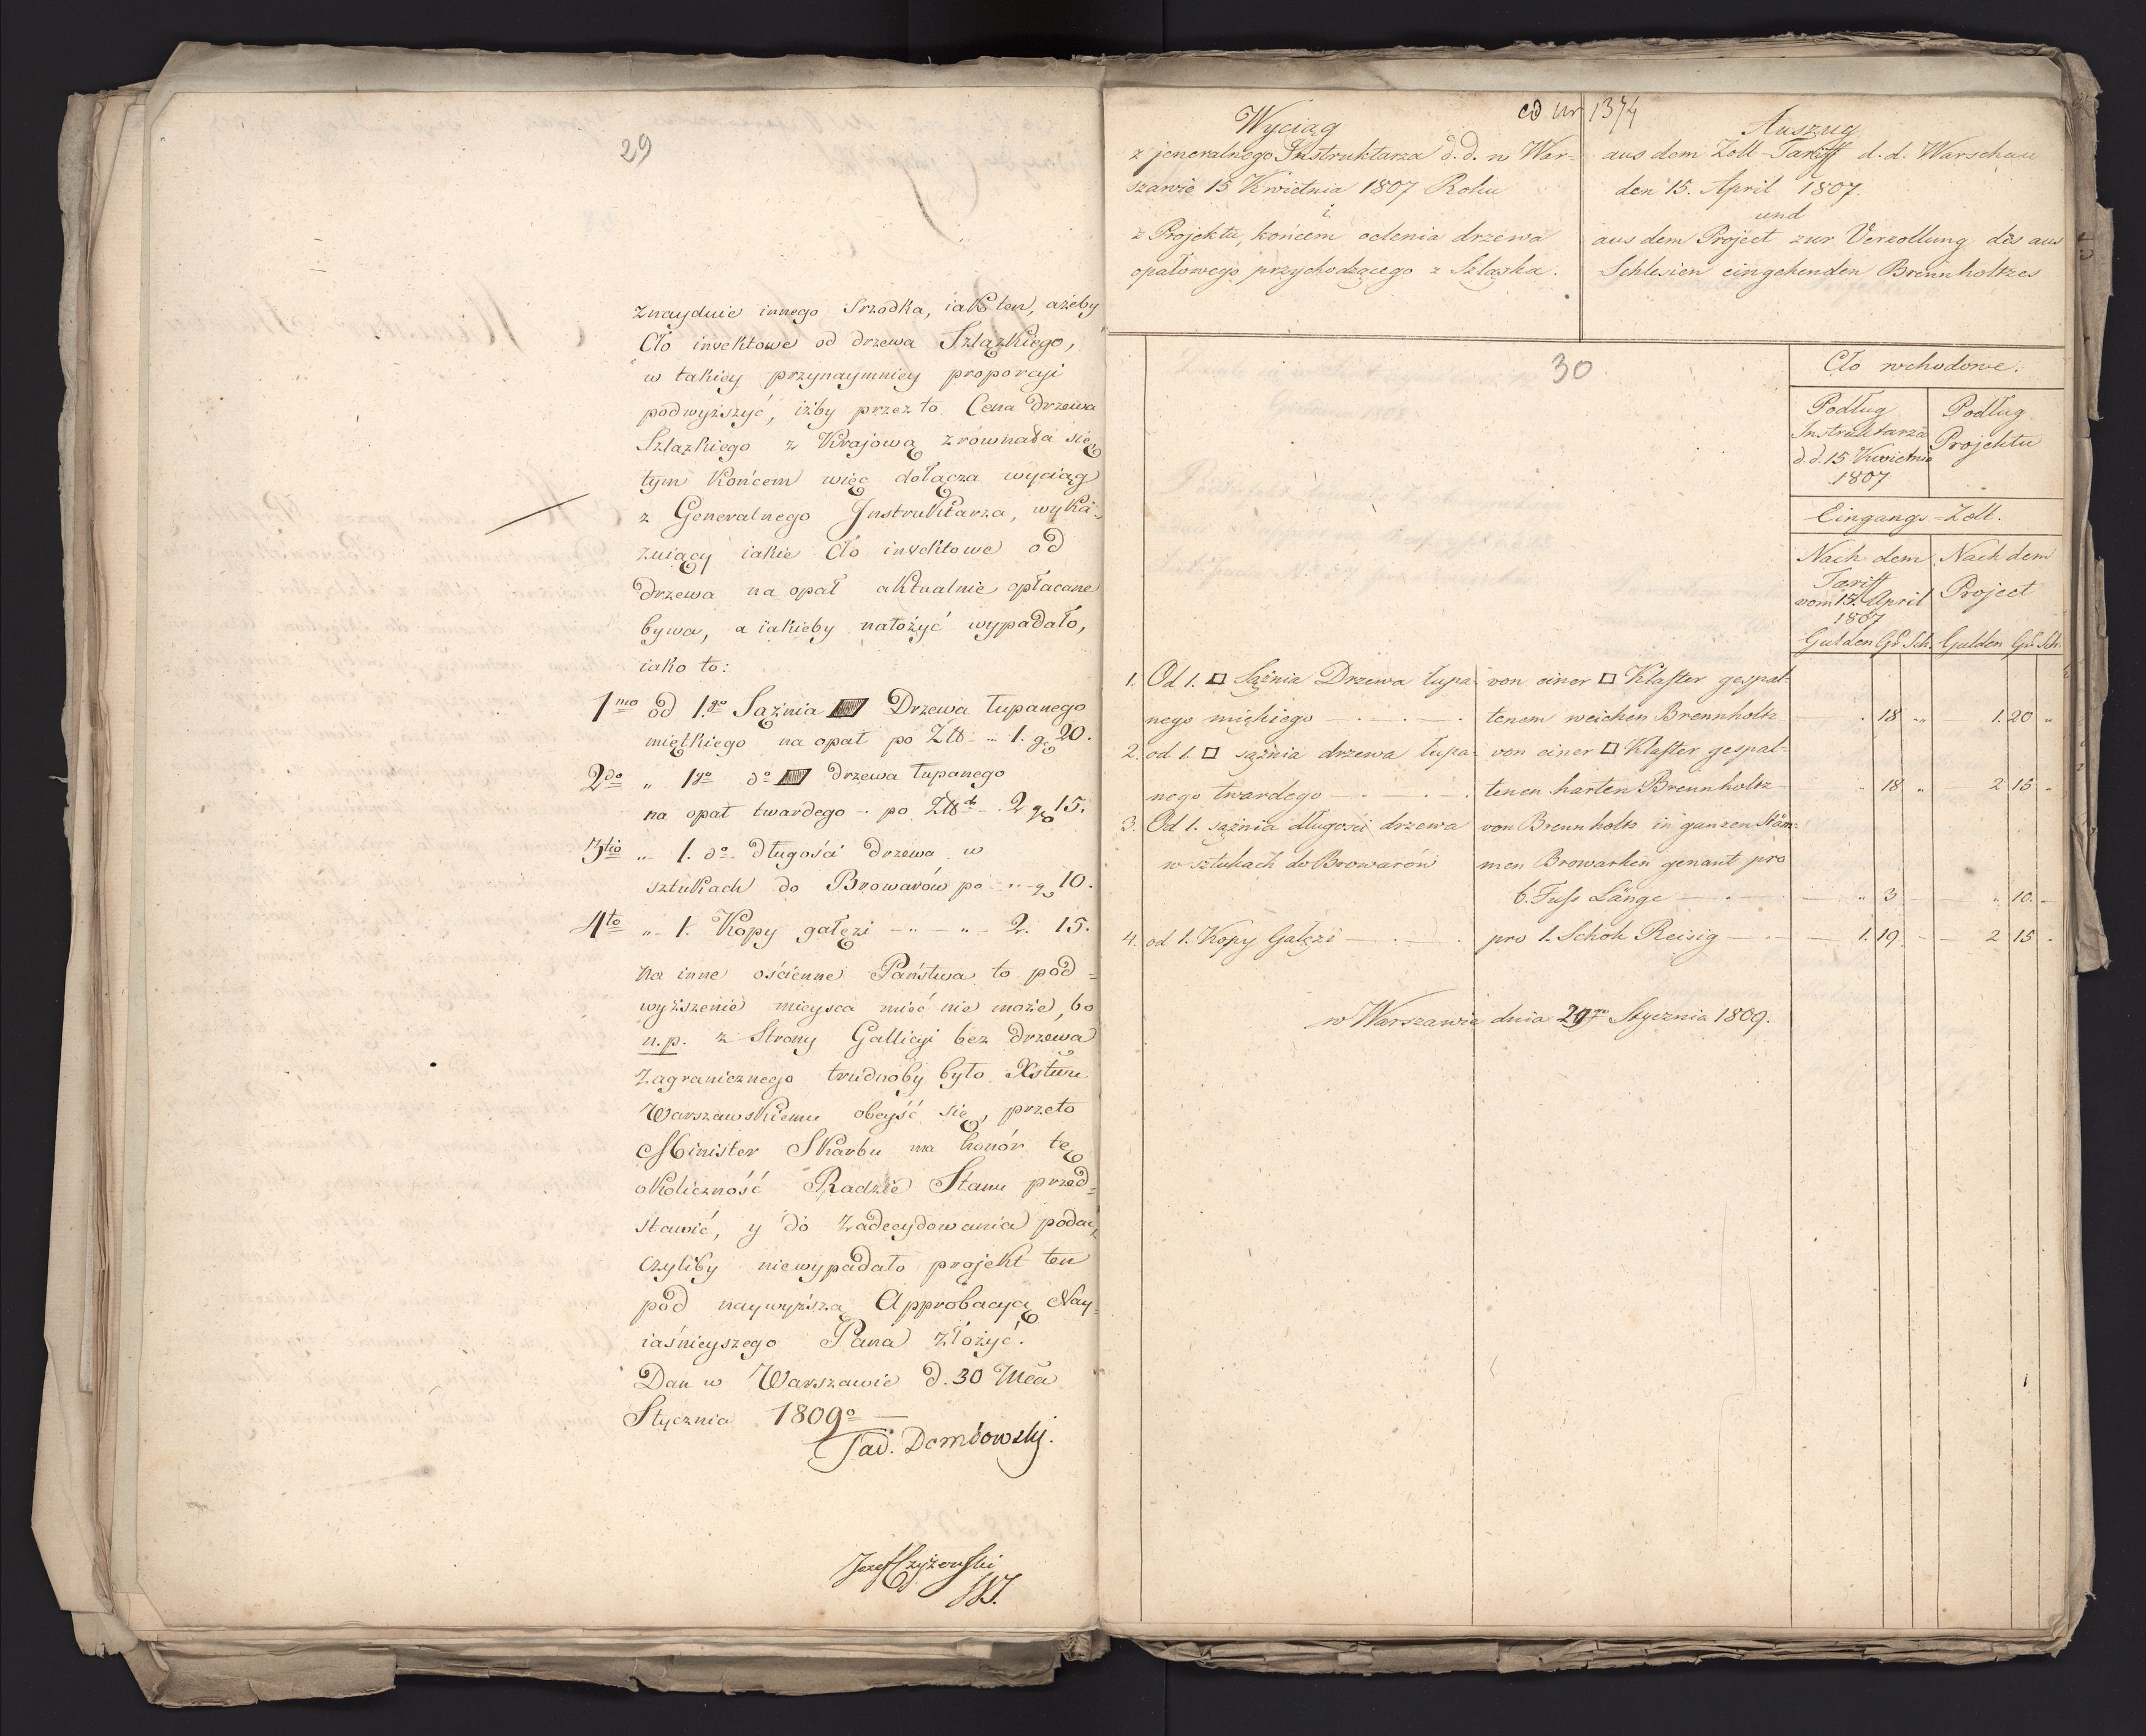 29
znayduie innego Srzodka, iak ten, ażeby
Cło invektowe od drzewa Szlązkiego,
w takiey przynaymniey proporcji
podwyższyć, iżby przez to Cena drzewa
Szlązkiego z Krajową zrównała się
tym końcem więc dołącza wyciąg
z Generalnego Instruktarza, wyka-
zuiący iakie Cło invektowe od
drzewa na opał aktualnie opłacane
bywa, a iakieby nałożyć wypadało,
iako to:
1mo od 1.go Sążnia □ Drzewa łupanego
miętkiego na opał po Złł - „ 1. gr 20.
2do „ 1go do □ drzewa łupanego
na opał twardego - po Złł - 2 gr 15.
3tio „ 1. do długości drzewa w
sztukach do Browarów po - „ - gr 10.
4to „ 1. Kopy gałęzi - „ - „ - 2. 15.
Na inne ościenne Państwa to pod=
wyższenie mieysca mieć nie może, bo
n.p. z Strony Gallicyi bez drzewa
Zagranicznego trudnoby było Xstwu
Warszawskiemu obeyść się, przeto
Minister Skarbu ma honór tę
okoliczność Radzie Stanu przed=
stawić, y do Zadecydowania podać,
czyliby niewypadało projekt ten
pod naywyższą Approbacyą Nay=
iaśnieyszego Pana złożyć.
Dan w Warszawie d. 30 Mca
Stycznia 1809o
Tad. Dembowski.
Jozef Czyżewski
cd nr 1374
Wyciąg
z jeneralnego Instruktarza d. d. w War=
szawie 15 Kwietnia 1807 Roku
i
z Projektu, końcem oclenia drzewa
opałowego przychodzącego z Szląska.
Auszug
aus dem Zoll-Tariff d. d. Warschau
den 15. April 1807.
und
aus dem Project zur Verzollung des aus
Schlesien eingehenden Brennholtzes
30
Cło wchodowe.
Podług Instruktarza d. d. 15 Kwietnia 1807
Podług Projektu
Eingangs-Zoll.
Nach dem Tariff vom 15. April 1807
Nach dem Project
Gulden Gr. Sch. Gulden Gr. Sch.
1. Od 1. □ Sążnia Drzewa łupa- von einer □ Klafter gespal-
nego miękiego - tenem weichen Brennholtz - . 18 „ 1. 20 „
2. od 1. □ sążnia drzewa łupa- von einer □ Klafter gespal-
nego twardego - tenen harten Brennholtz - . 18 „ 2 15 „
3. Od 1. sążnia długości drzewa von Brennholtz in ganzen Stäm-
w sztukach do Browarów men Browarken genant pro
6. Fuss Länge - „ 3 - „ 10. -
4. od 1. Kopy Gałęzi - pro 1. Schok Reisig - 1. 19 - 2 15 .
w Warszawie dnia 29go Stycznia 1809.